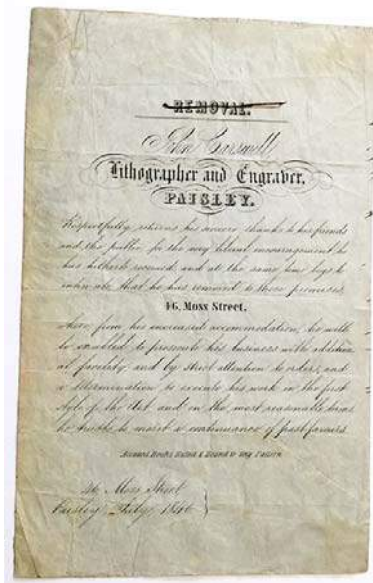 REMOVAL.
John Carswell
Lithographer and Engraver,
PAISLEY.
Respectfully returns his sincere thanks to his friends
and the public for the very liberal encouragement he
has hitherto received and at the same time begs to
intimate that he has removed to those premises,
46, Moss Street,
where from his increased accommodation, he will
be enabled to prosecute his business with addition-
al facility; and by strict attention to orders, and
a determination to execute his work in the first
style of the Art and in the most reasonable terms
he trusts to merit a continuance of past favours.
Account Books Ruled & Bound to any Pattern
46 Moss Street
Paisley July 1846